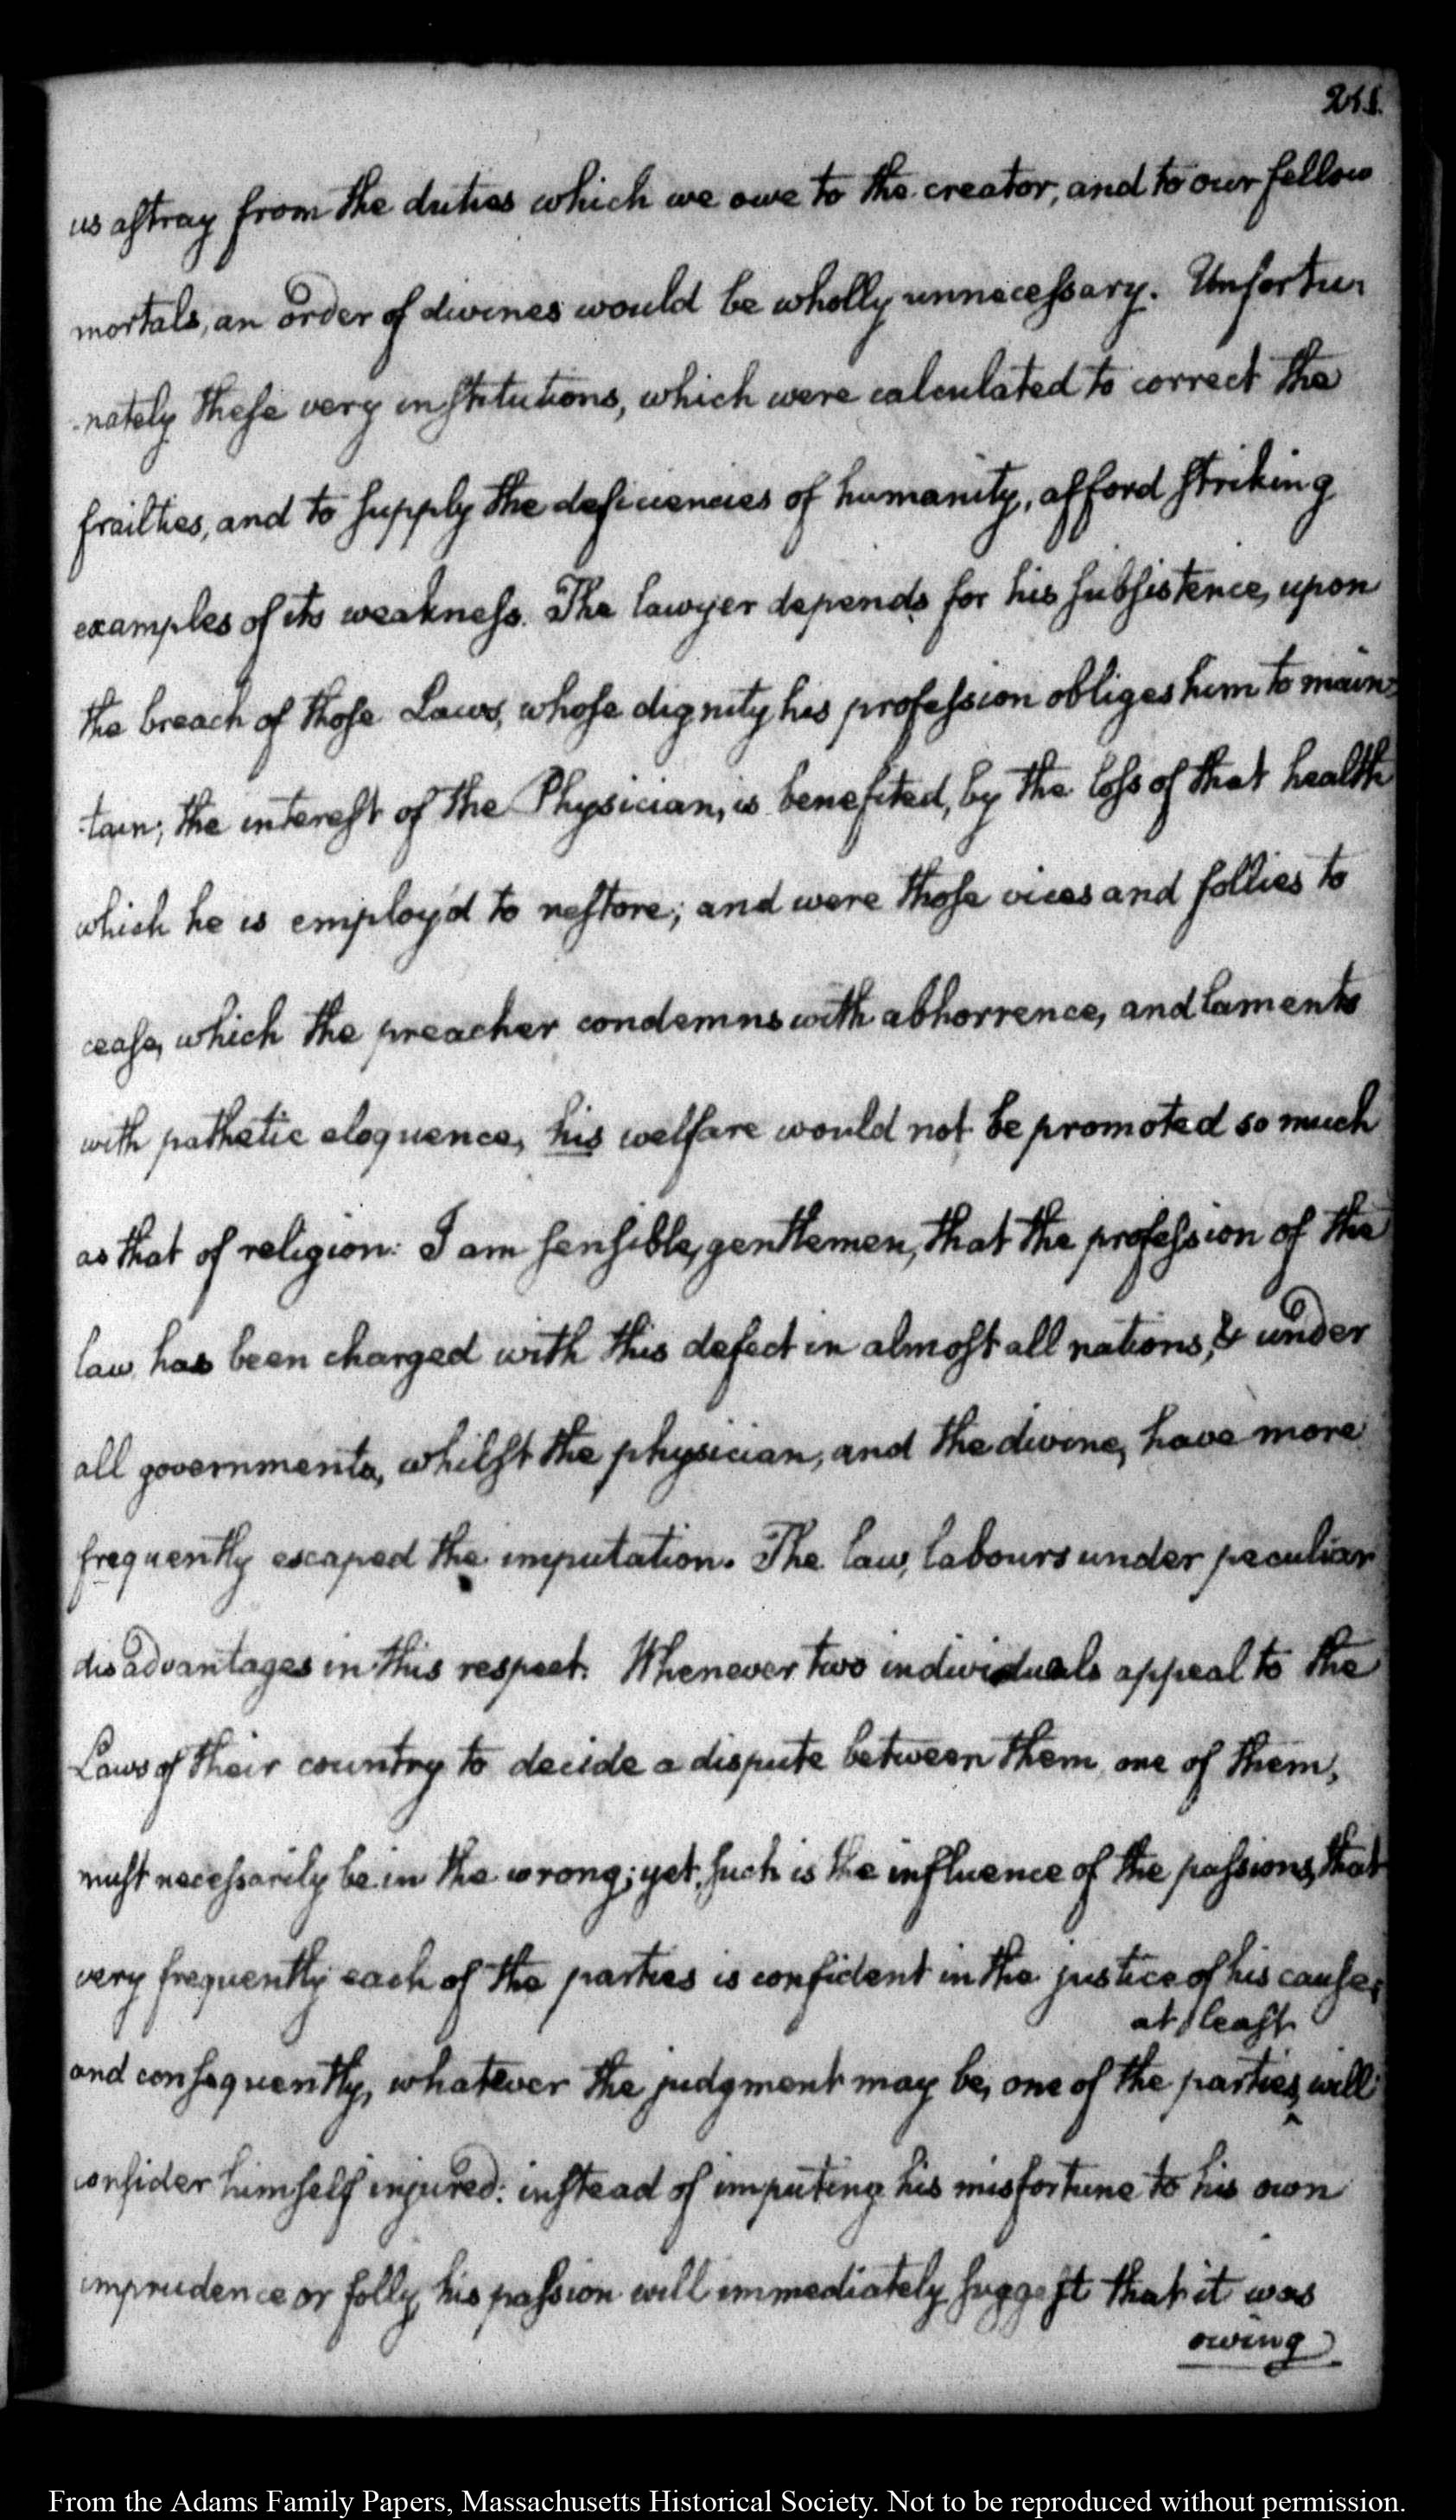 us astray from the duties which we owe to the creator, and to our fellow
mortals, an order of divines would be wholly unnecessary. Unfortu-
-nately these very institutions, which were calculated to correct the
frailties, and to supply the deficiencies of humanity, afford striking
examples of its weakness. The lawyer depends for his subsistence, upon
the breach of those Laws, whose dignity his profession obliges him to main-
-tain; the interest of the Physician, is benefited, by the loss of that health
which he is employ'd to restore; and were those vices and follies to
cease, which the preacher condemns with abhorrence, and laments
with pathetic eloquence, his welfare would not be promoted so much
as that of religion. I am sensible, gentlemen, that the profession of the
law has been charged with this defect in almost all nations, & under
all governments, whilst the physician, and the divine, have more
frequently escaped the imputation. The law, labours under peculiar
disadvantages in this respect. Whenever two individuals appeal to the
Laws of their country to decide a dispute between them one of them,
must necessarily be in the wrong; yet, such is the influence of the passions, that
very frequently each of the parties is confident in the justice of his cause;
at least
and consequently, whatever the judgment may be, one of the parties, ‸ will
consider himself injured: instead of imputing his misfortune to his own
imprudence or folly, his passion will immediately suggest that it was
owing
From the Adams Family Papers, Massachusetts Historical Society. Not to be reproduced without permission.